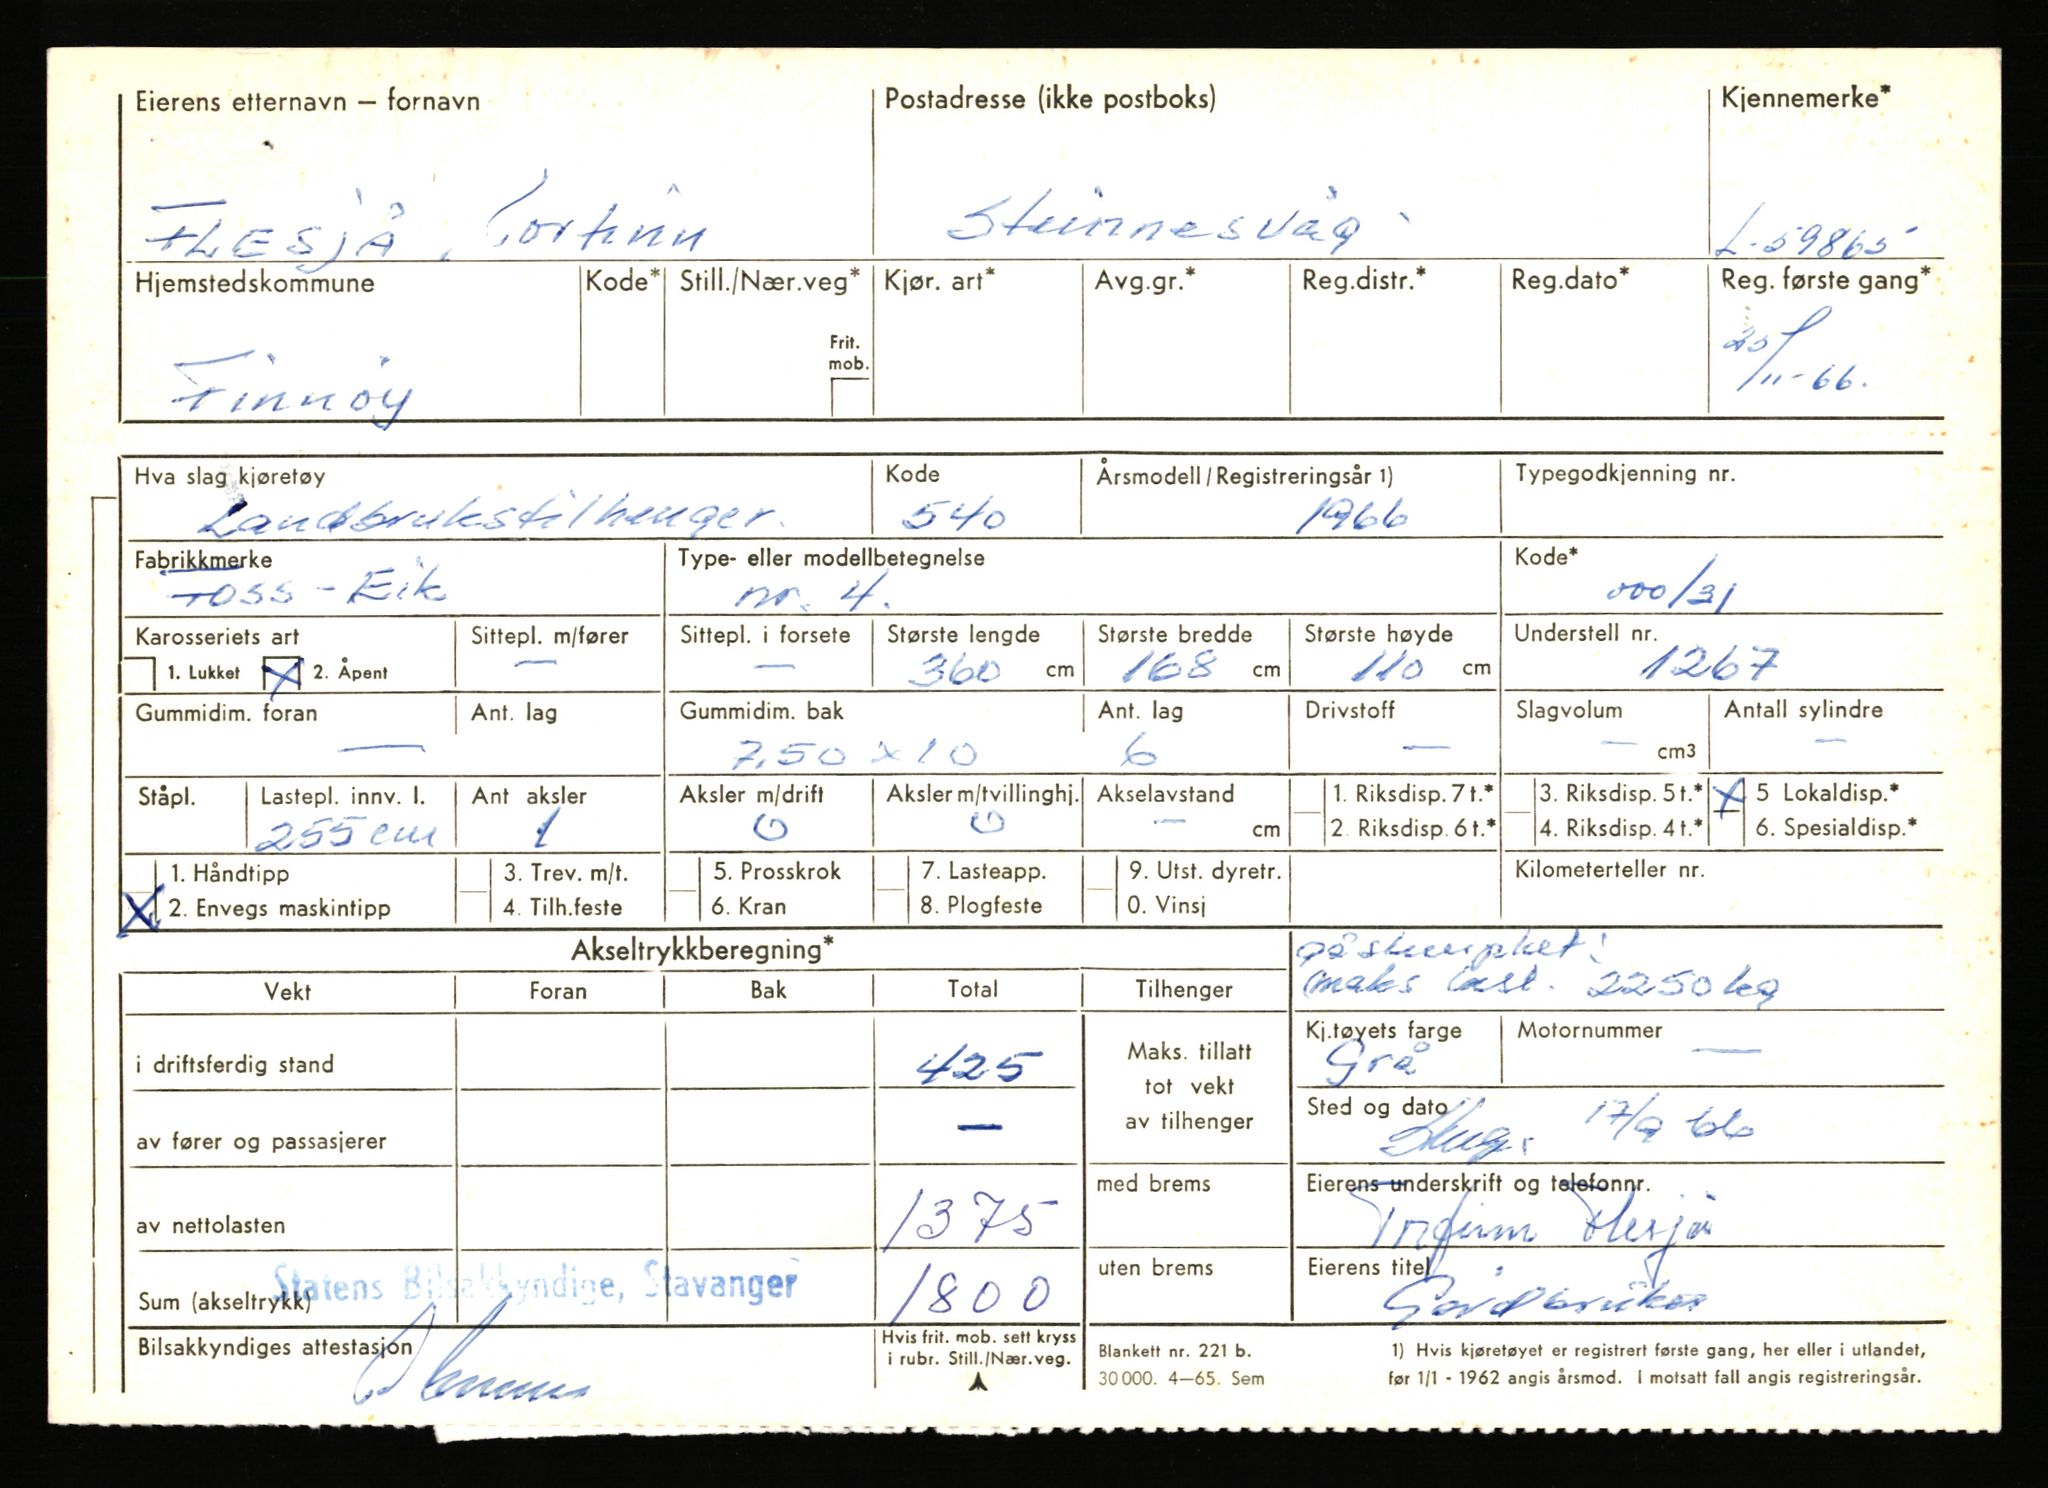 Eierens etternavn – fornavn Postadresse (ikke postboks) Kjennemerke*
FLESJÅ, Torfinn Steinnesvåg L-59865
Hjemstedskommune Kode* Still./Nær.veg* Kjør. art* Avg.gr.* Reg.distr.* Reg.dato* Reg. første gang*
Frit. mob.
Finnöy 25/11-66.
Hva slag kjøretøy Kode Årsmodell/Registreringsår 1) Typegodkjenning nr.
Landbrukstilhenger. 540 1966
Fabrikkmerke Type- eller modellbetegnelse Kode*
Foss-Eik nr. 4. 000/31
Karosseriets art Sittepl. m/fører Sittepl. i forsete Største lengde Største bredde Største høyde Understell nr.
1. Lukket X 2. Åpent — — 360 cm 168 cm 110 cm 1267
Gummidim. foran Ant. lag Gummidim. bak Ant. lag Drivstoff Slagvolum Antall sylindre
— 7.50 x 10 6 — — cm3 —
Ståpl. Lastepl. innv. l. Ant aksler Aksler m/drift Aksler m/tvillinghj. Akselavstand 1. Riksdisp. 7 t.* 3. Riksdisp. 5 t.* X 5 Lokaldisp.*
255 cm 1 0 0 — cm 2. Riksdisp. 6 t.* 4. Riksdisp. 4 t.* 6. Spesialdisp.*
1. Håndtipp 3. Trev. m/t. 5. Prosskrok 7. Lasteapp. 9. Utst. dyretr. Kilometerteller nr.
X 2. Envegs maskintipp 4. Tilh.feste 6. Kran 8. Plogfeste 0. Vinsj
Akseltrykkberegning* påstemplet:
Vekt Foran Bak Total Tilhenger maks last. 2250 kg
Kj.tøyets farge Motornummer
i driftsferdig stand 425 Maks. tillatt tot vekt av tilhenger Grå —
Sted og dato
av fører og passasjerer — 17/9 66
med brems Eierens underskrift og telefonnr.
av nettolasten 1375 Torfinn Flesjå
uten brems Eierens titel
Statens Bilsakkyndige, Stavanger
Sum (akseltrykk) 1800 Gårdbruker
Bilsakkyndiges attestasjon Hvis frit. mob. sett kryss i rubr. Still./Nær.veg.
Blankett nr. 221 b. 1) Hvis kjøretøyet er registrert første gang, her eller i utlandet,
30 000. 4–65. Sem før 1/1 - 1962 angis årsmod. I motsatt fall angis registreringsår.